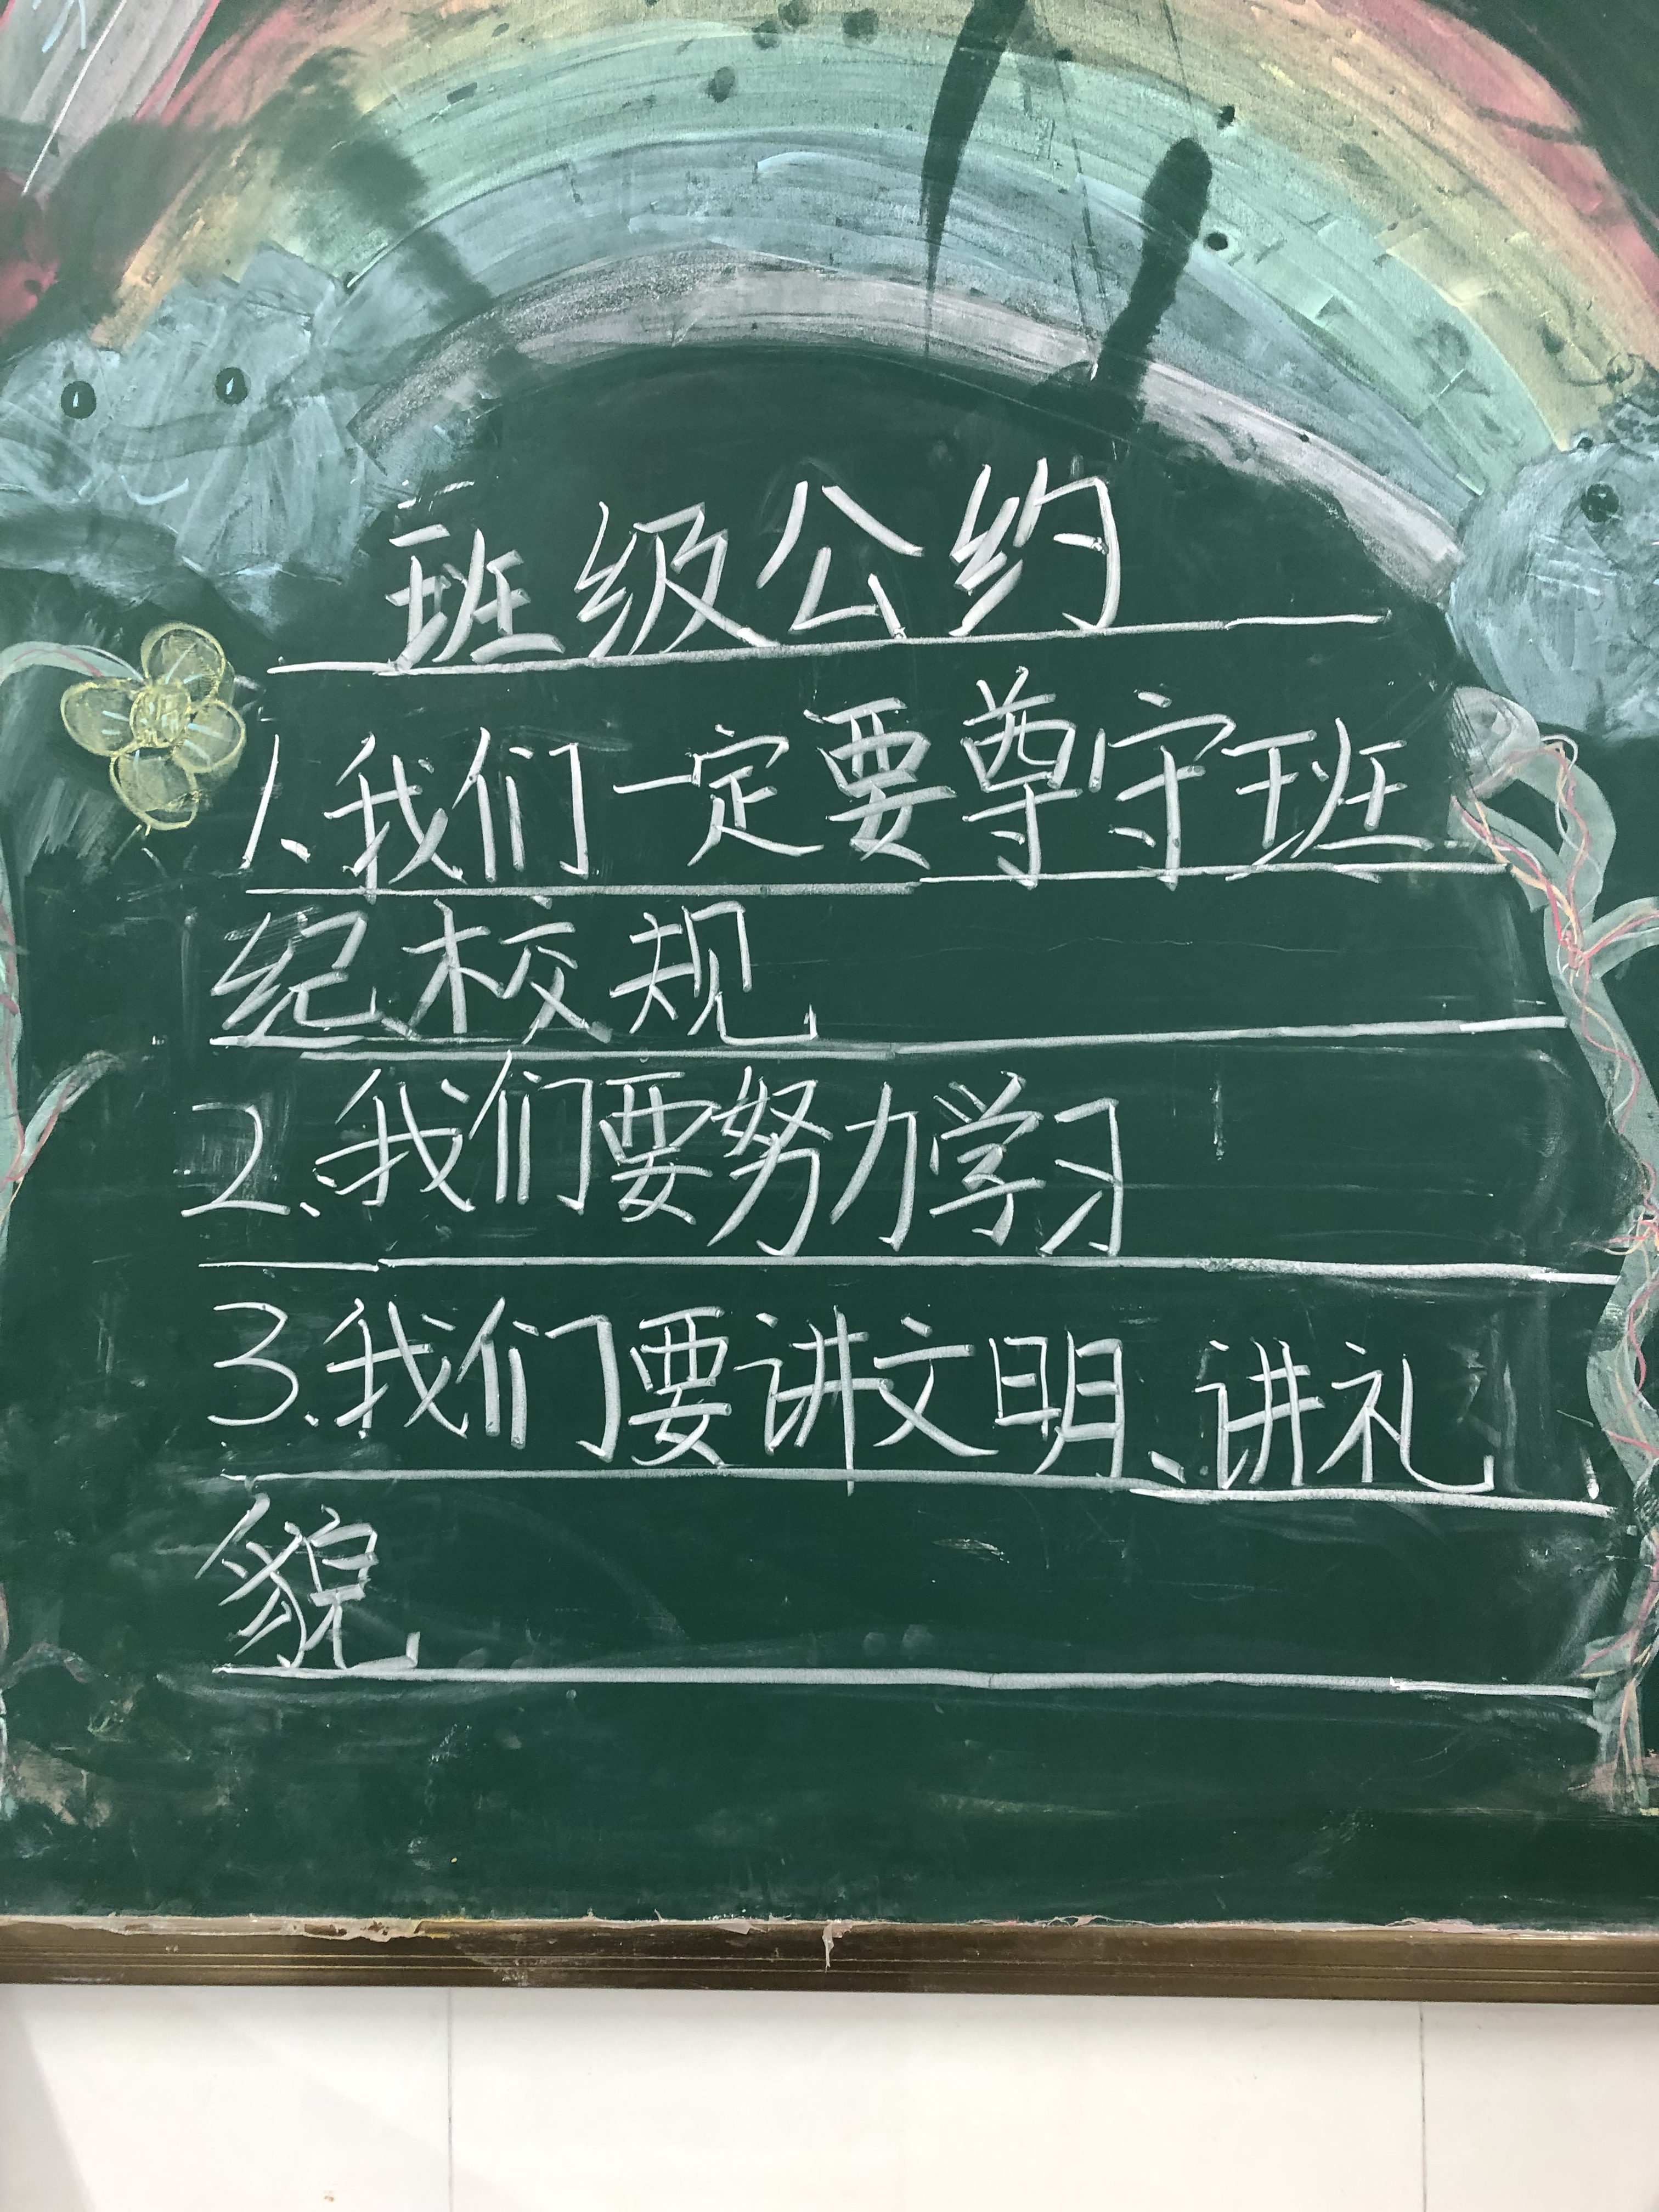 班级公约
1、我们一定要尊守班
纪、校规
2、我们要努力学习
3、我们要讲文明、讲礼
貌